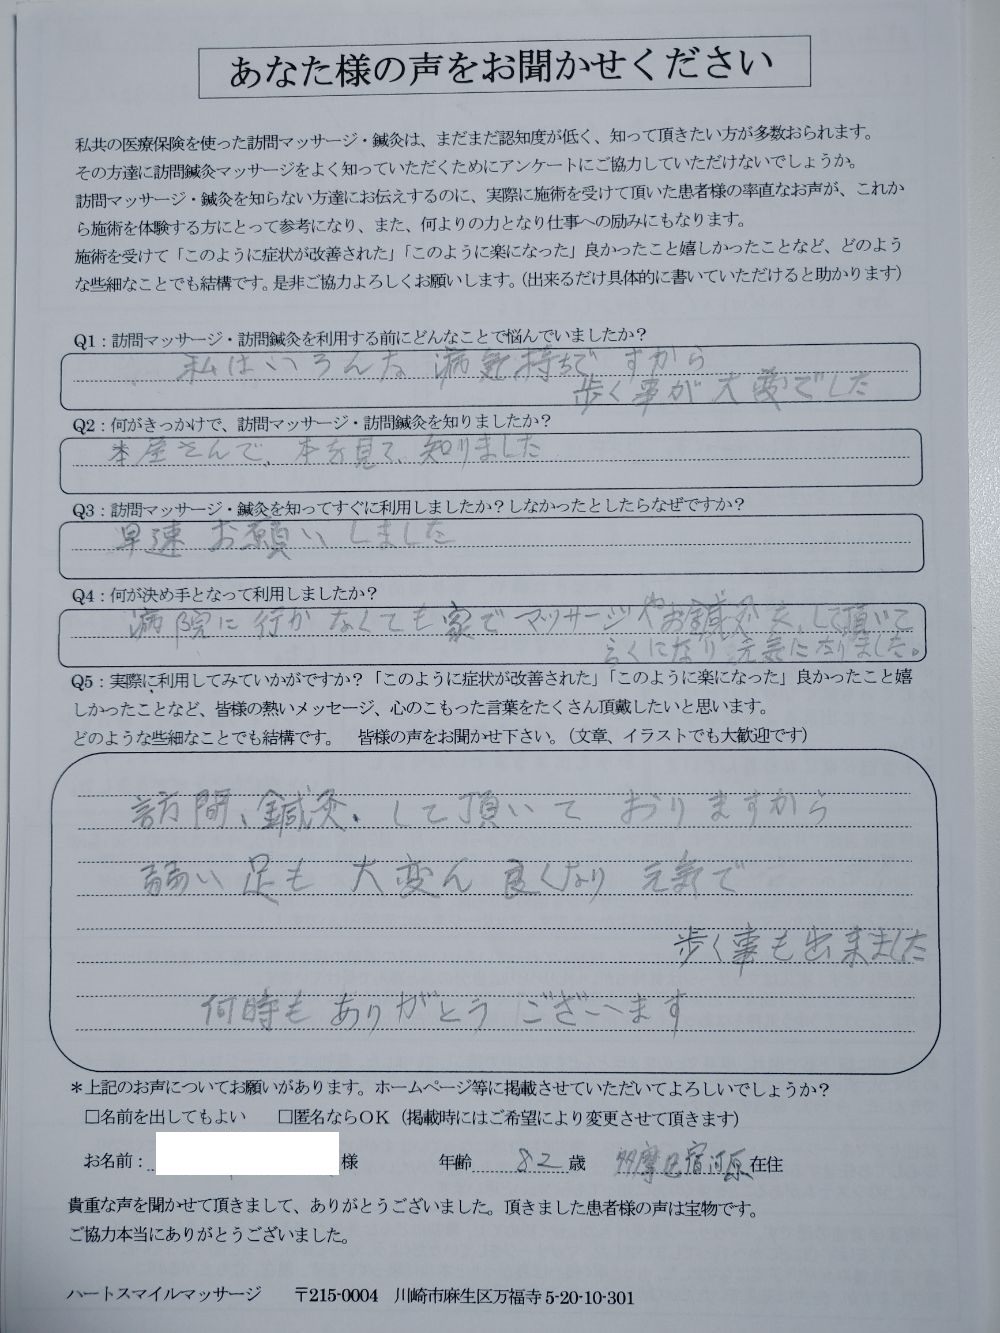 あなた様の声をお聞かせください
私共の医療保険を使った訪問マッサージ・鍼灸は、まだまだ認知度が低く、知って頂きたい方が多数おられます。
その方達に訪問鍼灸マッサージをよく知っていただくためにアンケートにご協力していただけないでしょうか。
訪問マッサージ・鍼灸を知らない方達にお伝えするのに、実際に施術を受けて頂いた患者様の率直なお声が、これか
ら施術を体験する方にとって参考になり、また、何よりの力となり仕事への励みにもなります。
施術を受けて「このように症状が改善された」「このように楽になった」良かったこと嬉しかったことなど、どのよう
な些細なことでも結構です。是非ご協力よろしくお願いします。（出来るだけ具体的に書いていただけると助かります）
Q1：訪問マッサージ・訪問鍼灸を利用する前にどんなことで悩んでいましたか？
私はいろんな 病気持ちで すから
歩く事が 大変でした
Q2：何がきっかけで、訪問マッサージ・訪問鍼灸を知りましたか？
本屋さんで、本を見て、知りました
Q3：訪問マッサージ・鍼灸を知ってすぐに利用しましたか？しなかったとしたらなぜですか？
早速 お願い しました
Q4：何が決め手となって利用しましたか？
病院に 行かなくても 家で マッサージやお鍼灸を、して頂いて
らくになり 元気になりました。
Q5：実際に利用してみていかがですか？「このように症状が改善された」「このように楽になった」良かったこと嬉
しかったことなど、皆様の熱いメッセージ、心のこもった言葉をたくさん頂戴したいと思います。
どのような些細なことでも結構です。 皆様の声をお聞かせ下さい。（文章、イラストでも大歓迎です）
訪問、鍼灸、して頂いて おりますから
弱い 足も 大変ん 良くなり 元気で
歩く事も出来ました
何時も ありがとう ございます
＊上記のお声についてお願いがあります。ホームページ等に掲載させていただいてよろしいでしょうか？
□名前を出してもよい □匿名ならOK（掲載時にはご希望により変更させて頂きます）
お名前： 様 年齢 82 歳 多摩区宿河原 在住
貴重な声を聞かせて頂きまして、ありがとうございました。頂きました患者様の声は宝物です。
ご協力本当にありがとうございました。
ハートスマイルマッサージ 〒215-0004 川崎市麻生区万福寺 5-20-10-301